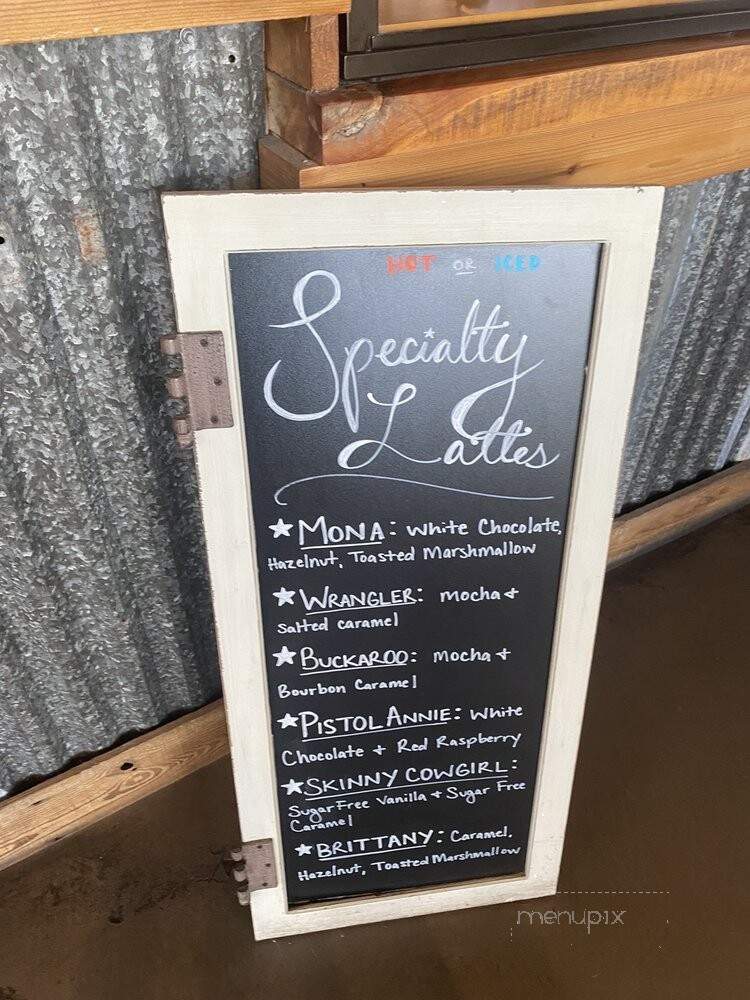 HOT OR ICED
Specialty
Lattes
★ MONA: White Chocolate,
Hazelnut, Toasted Marshmallow
★ WRANGLER: Mocha +
Salted Caramel
★ BUCKAROO: Mocha +
Bourbon Caramel
★ PISTOL ANNIE: White
Chocolate + Red Raspberry
★ SKINNY COWGIRL:
Sugar Free Vanilla + Sugar Free
Caramel
★ BRITTANY: Caramel,
Hazelnut, Toasted Marshmallow
menupix